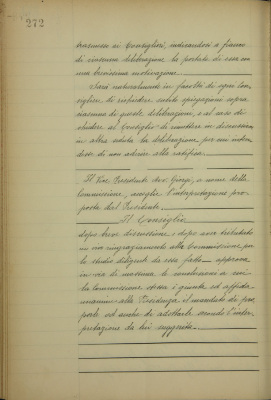 272
trasmessa ai Consiglieri, indicandosi a fianco
di ciascuna deliberazione la portata di essa con
una brevissima motivazione.
Sarà naturalmente in facoltà di ogni Con-
sigliere, di richiedere subito spiegazioni sopra
ciascuna di queste deliberazioni, e al caso di
chiedere al Consiglio di rimettere in discussione
in altra seduta la deliberazione per cui inten-
desse di non aderire alla ratifica.
Il Vice Presidente Avv. Giorgi, a nome della
Commissione, accoglie l'interpretazione pro-
posta dal Presidente.
Il Consiglio
dopo breve discussione e dopo aver tributato
un vivo ringraziamento alla Commissione per
lo studio diligente da essa fatto approva
in via di massima le conclusioni a cui
la Commissione stessa è giunta ed affida
unanime alla Presidenza il mandato di pro-
porle ed anche di adottarle secondo l'inter-
pretazione da lui suggerita.